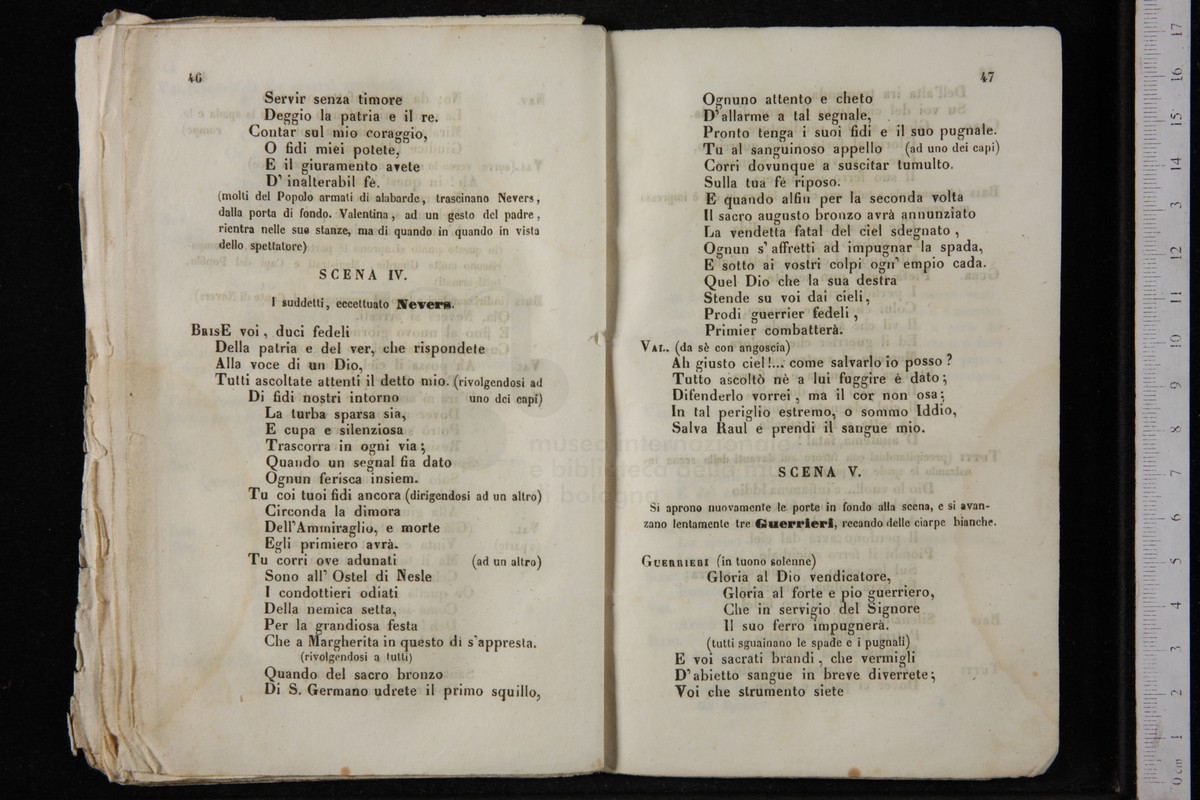 46
Servir senza timore
Deggio la patria e il re.
Contar sul mio coraggio,
O fidi miei potete,
E il giuramento avete
D' inalterabil fè.
(molti del Popolo armati di alabarde, trascinano Nevers,
dalla porta di fondo. Valentina, ad un gesto del padre,
rientra nelle sue stanze, ma di quando in quando in vista
dello spettatore)
SCENA IV.
I suddetti, eccettuato Nevers.
BrisE voi, duci fedeli
Della patria e del ver, che rispondete
Alla voce di un Dio,
Tutti ascoltate attenti il detto mio. (rivolgendosi ad
Di fidi nostri intorno uno dei capi)
La turba sparsa sia,
E cupa e silenziosa
Trascorra in ogni via;
Quando un segnal fia dato
Ognun ferisca insiem.
Tu coi tuoi fidi ancora (dirigendosi ad un altro)
Circonda la dimora
Dell'Ammiraglio, e morte
Egli primiero avrà.
Tu corri ove adunati (ad un altro)
Sono all' Ostel di Nesle
I condottieri odiati
Della nemica setta,
Per la grandiosa festa
Che a Margherita in questo dì s'appresta.
(rivolgendosi a tutti)
Quando del sacro bronzo
Di S. Germano udrete il primo squillo,
47
Ognuno attento e cheto
D'allarme a tal segnale,
Pronto tenga i suoi fidi e il suo pugnale.
Tu al sanguinoso appello (ad uno dei capi)
Corri dovunque a suscitar tumulto.
Sulla tua fè riposo.
E quando alfin per la seconda volta
Il sacro augusto bronzo avrà annunziato
La vendetta fatal del ciel sdegnato,
Ognun s' affretti ad impugnar la spada,
E sotto ai vostri colpi ogn' empio cada.
Quel Dio che la sua destra
Stende su voi dai cieli,
Prodi guerrier fedeli,
Primier combatterà.
Val. (da sè con angoscia)
Ah giusto ciel!... come salvarlo io posso?
Tutto ascoltò nè a lui fuggire è dato;
Difenderlo vorrei, ma il cor non osa;
In tal periglio estremo, o sommo Iddio,
Salva Raul e prendi il sangue mio.
SCENA V.
Si aprono nuovamente le porte in fondo alla scena, e si avan-
zano lentamente tre Guerrieri, recando delle ciarpe bianche.
Guerrieri (in tuono solenne)
Gloria al Dio vendicatore,
Gloria al forte e pio guerriero,
Che in servigio del Signore
Il suo ferro impugnerà.
(tutti sguainano le spade e i pugnali)
E voi sacrati brandi, che vermigli
D'abietto sangue in breve diverrete;
Voi che strumento siete
museo internazionale
e biblioteca della musica
di bologna
0 cm 1 2 3 4 5 6 7 8 9 10 11 12 13 14 15 16 17